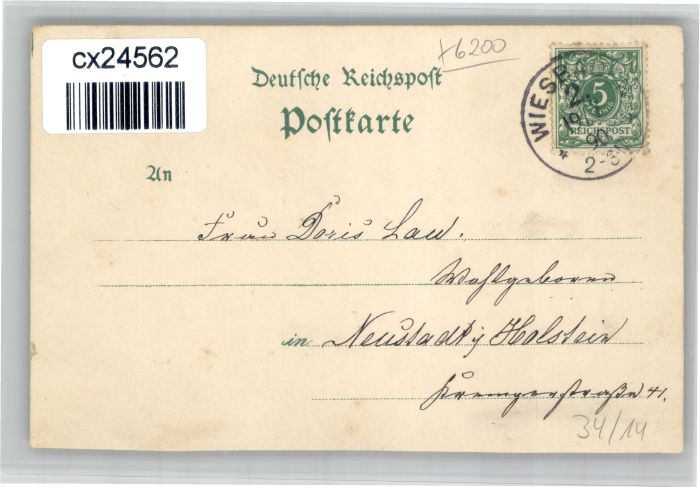 cx24562
x6200
Deutsche Reichspost
Postkarte
WIESBA
2.
5
REICHSPOST
98
2-3N
An
Frau Doris Lau.
Wohlgeboren
in Neustadt i/ Holstein
Kremperstraße 41.
34/14